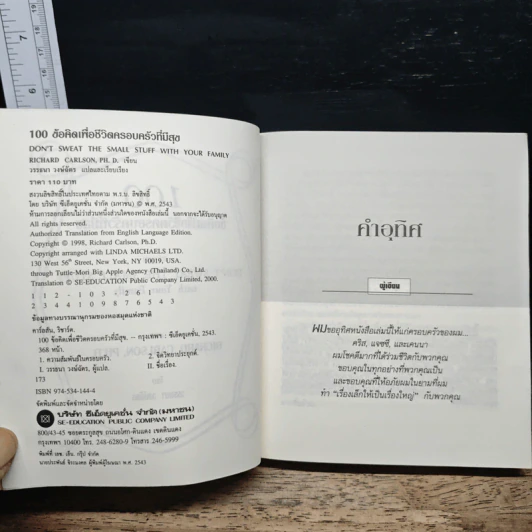 100 ข้อคิดเพื่อชีวิตครอบครัวที่มีสุข
DON'T SWEAT THE SMALL STUFF WITH YOUR FAMILY
RICHARD CARLSON, PH. D. เขียน
วรรธนา วงษ์ฉัตร แปลและเรียบเรียง
ราคา 110 บาท
สงวนลิขสิทธิ์ในประเทศไทยตาม พ.ร.บ. ลิขสิทธิ์
โดย บริษัท ซีเอ็ดยูเคชั่น จำกัด (มหาชน) © พ.ศ. 2543
ห้ามการลอกเลียนไม่ว่าส่วนหนึ่งส่วนใดของหนังสือเล่มนี้ นอกจากจะได้รับอนุญาต
All rights reserved.
Authorized Translation from English Language Edition.
Copyright © 1998, Richard Carlson, Ph.D.
Copyright arranged with LINDA MICHAELS LTD.
130 West 56" Street, New York, NY 10001
through Tuttle-Mori Big Apple Agency (Thailand) Co., Ltd.
Translation © SE-EDUCATION Public Company Limited, 2000.
1 1 2 - 1 0 3 - 2 6 1
2 3 4 4 1 0 9 8 7 6 5 4 3
ข้อมูลทางบรรณานุกรมของหอสมุดแห่งชาติ
คาร์ลสัน, ริชาร์ด.
100 ข้อคิดเพื่อชีวิตครอบครัวที่มีสุข. -- กรุงเทพฯ : ซีเอ็ดยูเคชั่น, 2543.
368 หน้า.
1. ความสัมพันธ์ในครอบครัว. 2. จิตวิทยาประยุกต์.
I. วรรธนา วงษ์ฉัตร, ผู้แปล. II. ชื่อเรื่อง.
173
ISBN 974-534-144-4
จัดพิมพ์และจัดจำหน่ายโดย
บริษัท ซีเอ็ดยูเคชั่น จำกัด (มหาชน)
SE-EDUCATION PUBLIC COMPANY LIMITED
800/43-45 ซอยตระกูลสุข ถนนอโศก-ดินแดง เขตดินแดง
กรุงเทพฯ 10400 โทร. 248-6280-9 โทรสาร 246-5999
พิมพ์ที่ เอช. เอ็น. กรุ๊ป จำกัด
คำอุทิศ
ผู้เขียน
ผมขออุทิศหนังสือเล่มนี้ให้แก่ครอบครัวของผม...
คริส, แจซซี, และเคนนา
ผมโชคดีมากที่ได้ร่วมชีวิตกับพวกคุณ
ขอบคุณในทุกอย่างที่พวกคุณเป็น
และขอบคุณที่ให้อภัยผมในยามที่ผม
ทำ "เรื่องเล็กให้เป็นเรื่องใหญ่" กับพวกคุณ
5
6
7